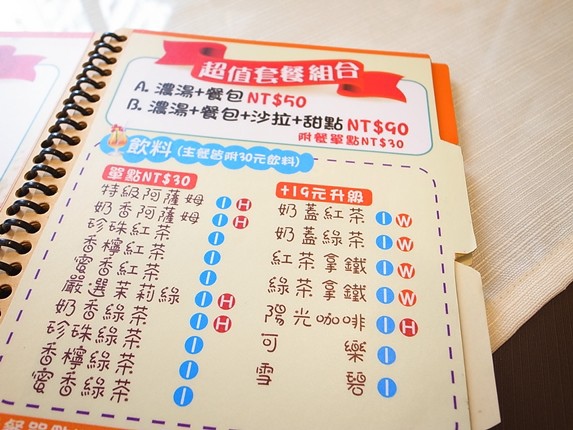 超值套餐組合
A. 濃湯+餐包 NT$50
B. 濃湯+餐包+沙拉+甜點 NT$90
附餐單點NT$30
飲料 (主餐皆附30元飲料)
單點NT$30
特級阿薩姆 I H
奶香阿薩姆 I H
珍珠紅茶 I
香檸紅茶 I
蜜香紅茶 I
嚴選茉莉綠 I H
奶香綠茶 I H
珍珠綠茶 I
香檸綠茶 I
蜜香綠茶 I
+19元升級
奶蓋紅茶 I W
奶蓋綠茶 I W
紅茶拿鐵 I W
綠茶拿鐵 I W
陽光咖啡 I H
可樂 I
雪碧 I